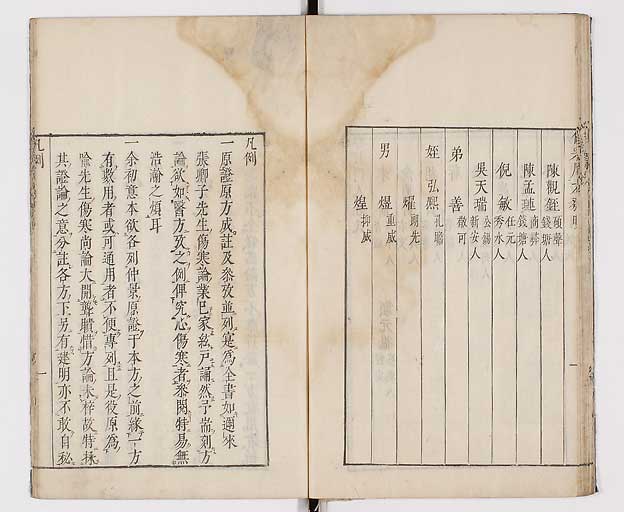 陳觀鉦 碩聲 錢塘人
陳孟璉 南彝 錢塘人
倪敏 在元 秀水人
吳天瑞 公錫 新安人
弟善 敬可
姪弘熙 孔聯
燿 期先
男焜 重威
煌 抑威
凡例
一原證原方成註及叅攷並列寔為全書如邇來
張卿子先生傷寒論業已家絃戶誦然予耑刻方
論欲如醫方攷之例俾究心傷寒者叅閱特易無
浩瀚之煩耳
一余初意本欲各列仲景原證于本方之前緣一方
有數用者或可通用者不便專列且是役原為
喻先生傷寒尚論大開聾聵惜方論未梓故特採
其證論之意分註各方下另有建明亦不敢自秘
凡例
一